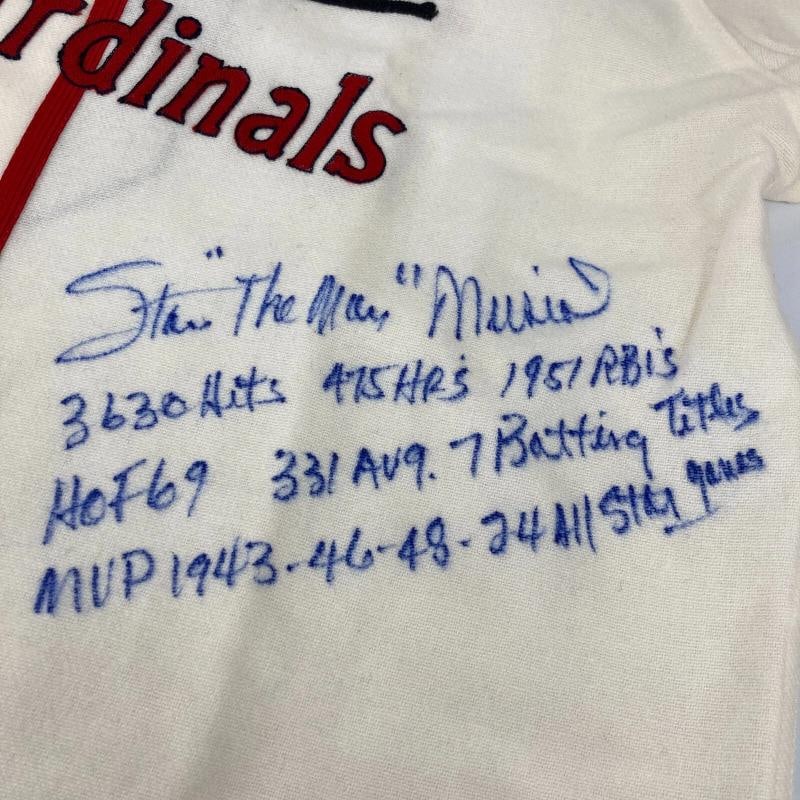 rdinals
Stan "The Man" Musial
3630 Hits 475 HR's 1951 RBI's
HOF 69 331 AVG. 7 Batting Titles
MVP 1943-46-48-24 All Star games